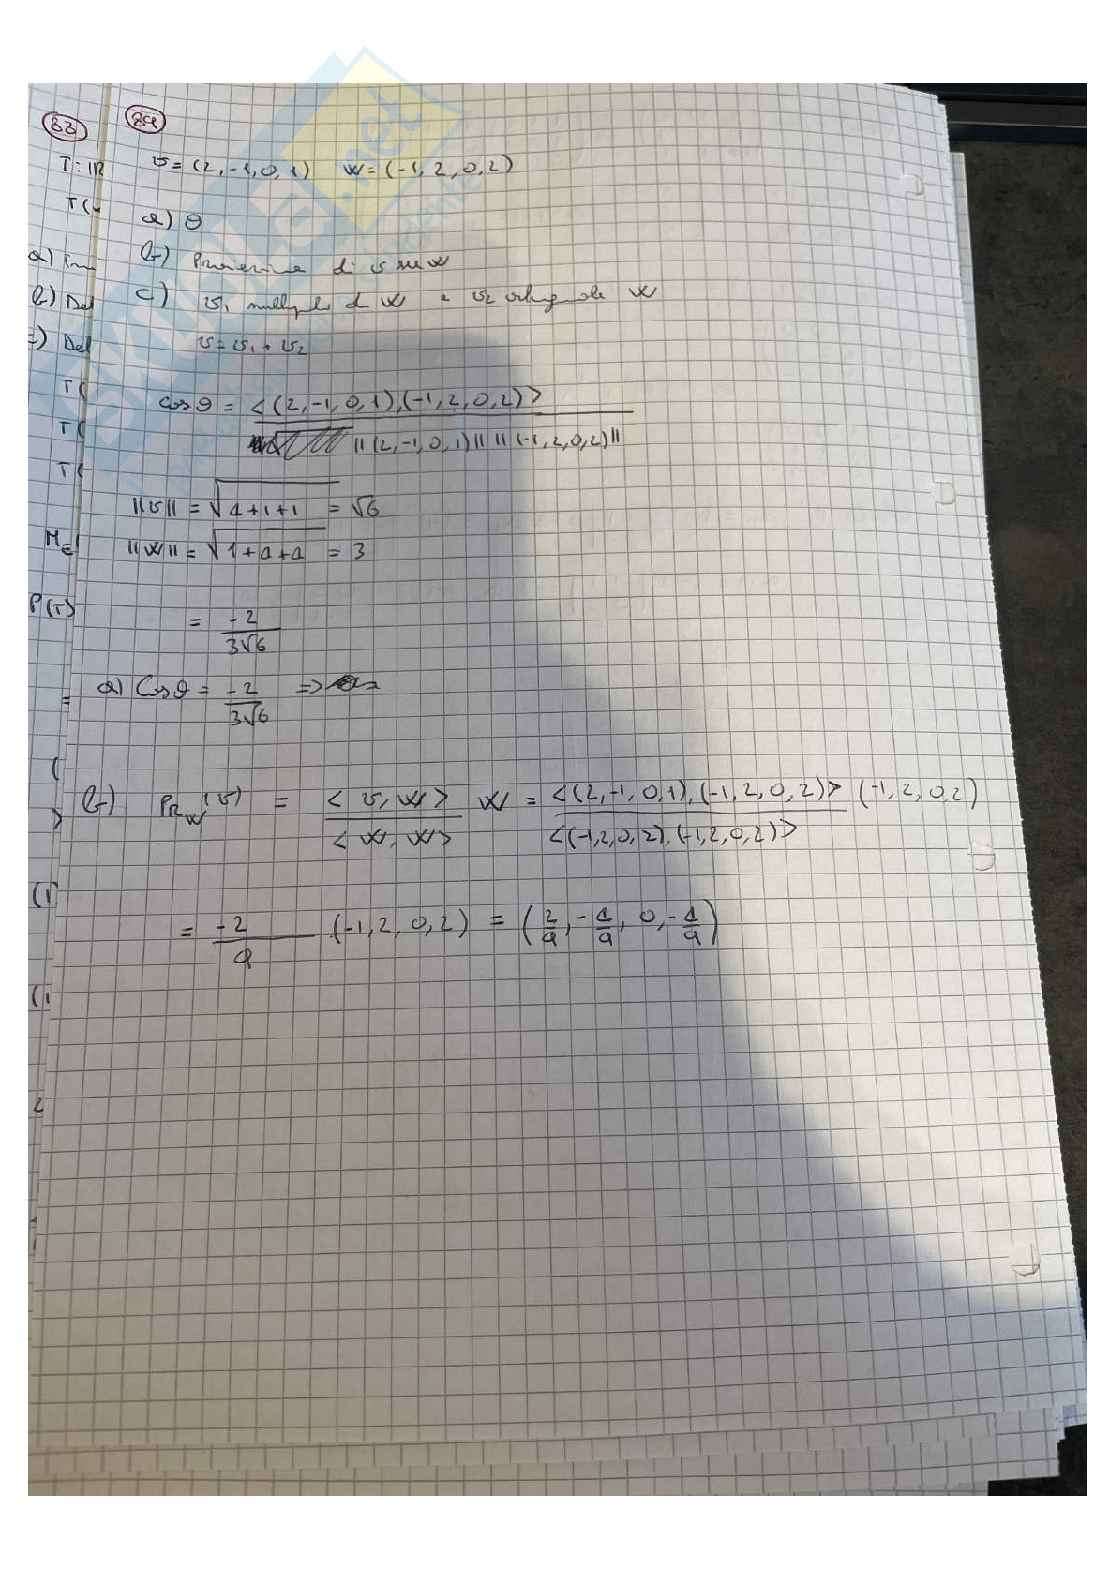 33
24
T: IR
v = (2, -1, 0, 1) w = (-1, 2, 0, 2)
T(
a) θ
a) Im
b) Proiezione di v su w
b) Del
c) v₁ multiplo di w e v₂ ortogonale w
c) Del
v = v₁ + v₂
T(
cos θ = <(2, -1, 0, 1), (-1, 2, 0, 2)>
T(
||(2, -1, 0, 1)|| ||(-1, 2, 0, 2)||
T(
||v|| = √4+1+1 = √6
||w|| = √1+4+4 = 3
P(T)
= -2
3√6
=
a) Cos θ = -2 =>
3√6
b) PRw(v) = <v, w> w = <(2, -1, 0, 1), (-1, 2, 0, 2)> (-1, 2, 0, 2)
<w, w> <(-1, 2, 0, 2), (-1, 2, 0, 2)>
= -2/9 (-1, 2, 0, 2) = (2/9, -4/9, 0, -4/9)
SKUOLA.net